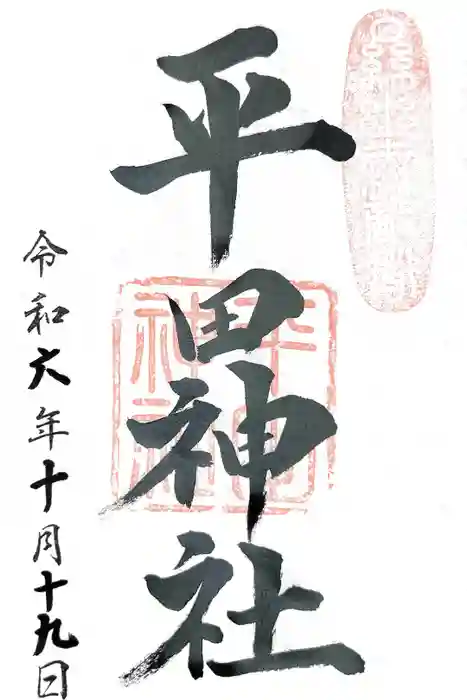 平田神社
令和六年十月十九日
平田
神社